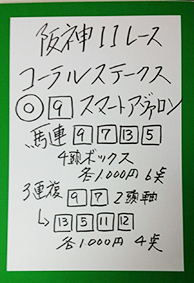 阪神11レース
コーラルステークス
◎ 9 スマートアヴァロン
馬連 9 7 13 5
4頭ボックス
各1.000円 6点
3連複 9 7 2頭軸
↳ 13 5 11 12
各1.000円 4点